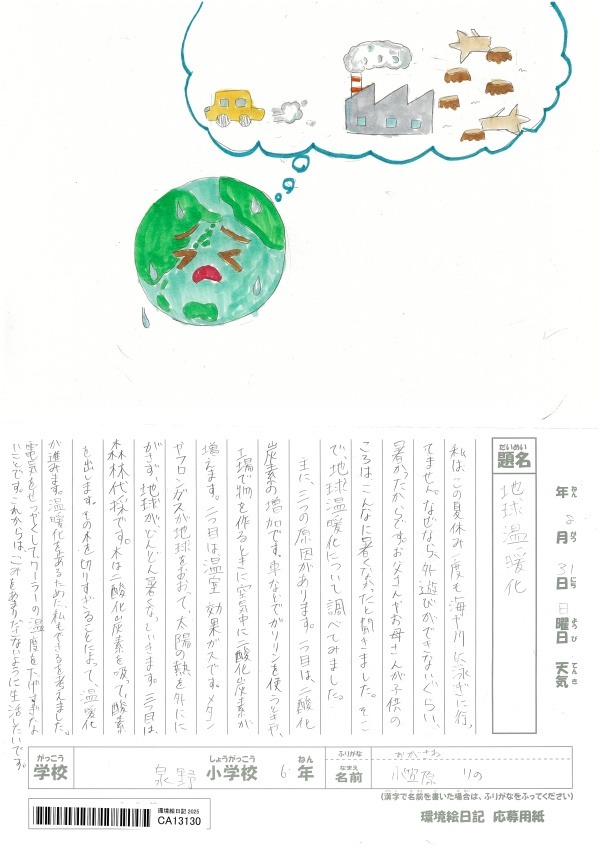 だいめい
題名
地球温暖化
年 ねん
月 がつ
31 日 にち
日 曜日 ようび
天気 てんき
私は、この夏休み一度も海や川に泳ぎに行っ
てません。なぜなら、外遊びができないぐらい、
暑かったからです。お父さんやお母さんが子供の
ころは、こんなに暑くなかったと聞きました。そこ
で、地球温暖化について調べてみました。
主に、三つの原因があります。一つ目は、二酸化
炭素の増加です。車などでガソリンを使うときや、
工場で物を作るときに空気中に二酸化炭素が
増えます。二つ目は温室効果ガスです。メタン
やフロンガスが地球をおおって、太陽の熱を外ににに
がさず、地球がどんどん暑くなっていきます。三つ目は、
森林代採です。木は二酸化炭素を吸って、酸素
を出します。その木を切りすぎることによって、温暖化
が進みます。温暖化をあるために、私もできるを考えました。
電気をせつやくして、クーラーの温度を下げ
いことです。これからは、ごみをあまりださないように生活したいです。
がっこう
学校
泉野
しょうがっこう
小学校
6 年 ねん
ふりがな
おがさわ
なまえ
名前
小笠原 りの
(漢字で名前を書いた場合は、ふりがなをふってください)
環境絵日記 2025
CA13130
環境絵日記 応募用紙